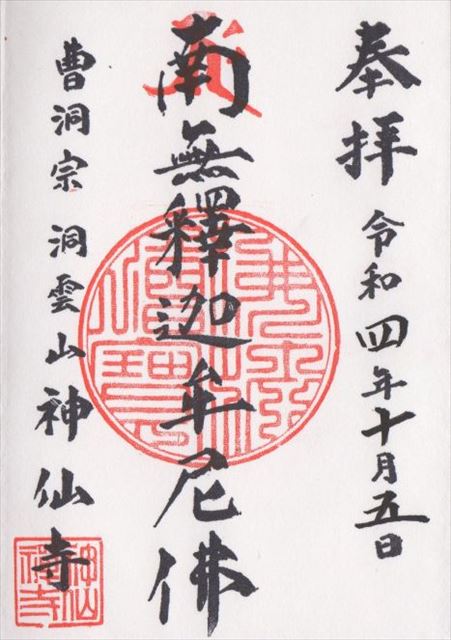 奉拝 令和四年十月五日
南無釋迦牟尼佛
曹洞宗 洞雲山神仙寺
神仙禅寺